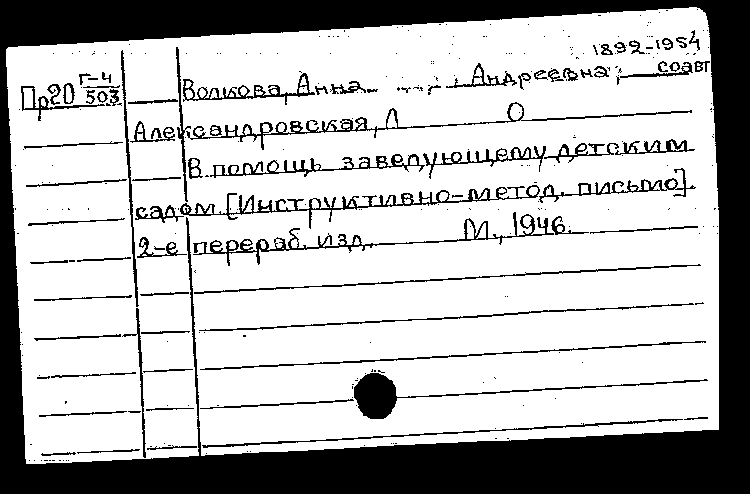 1892-1954
Пр20 Г-4/503 Волкова, Анна Андреевна; соавт
Александровская, Л О
В помощь заведующему детским
садом. [Инструктивно-метод. письмо].
2-е перераб. изд. М., 1946.